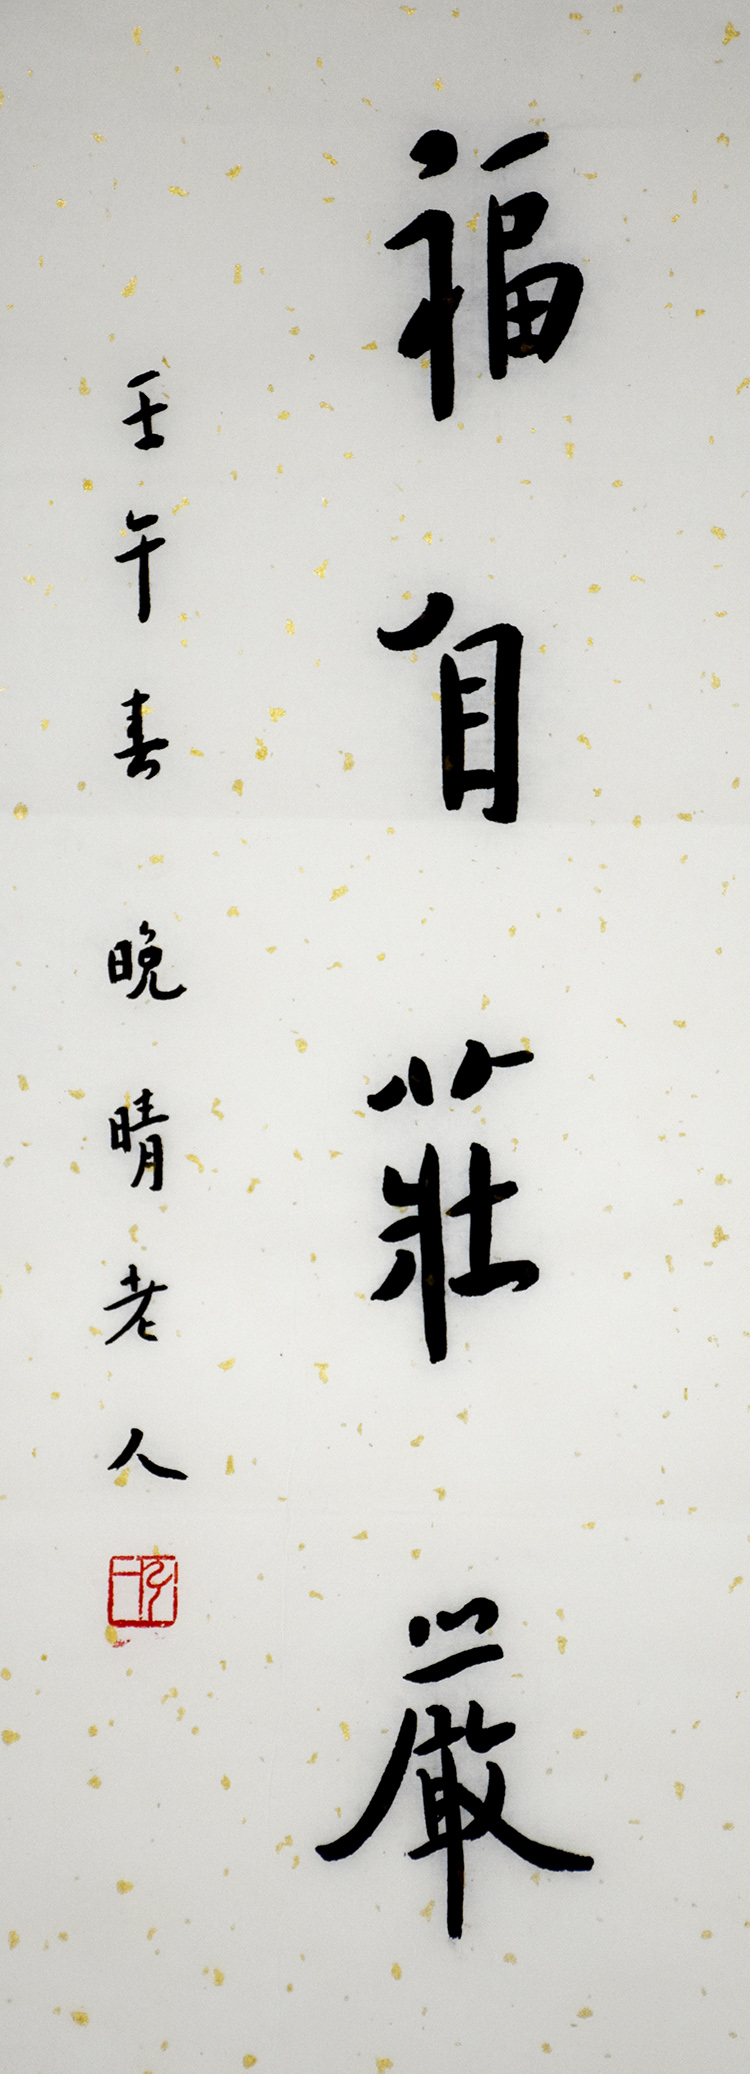 福自莊嚴
壬午春 晚晴老人